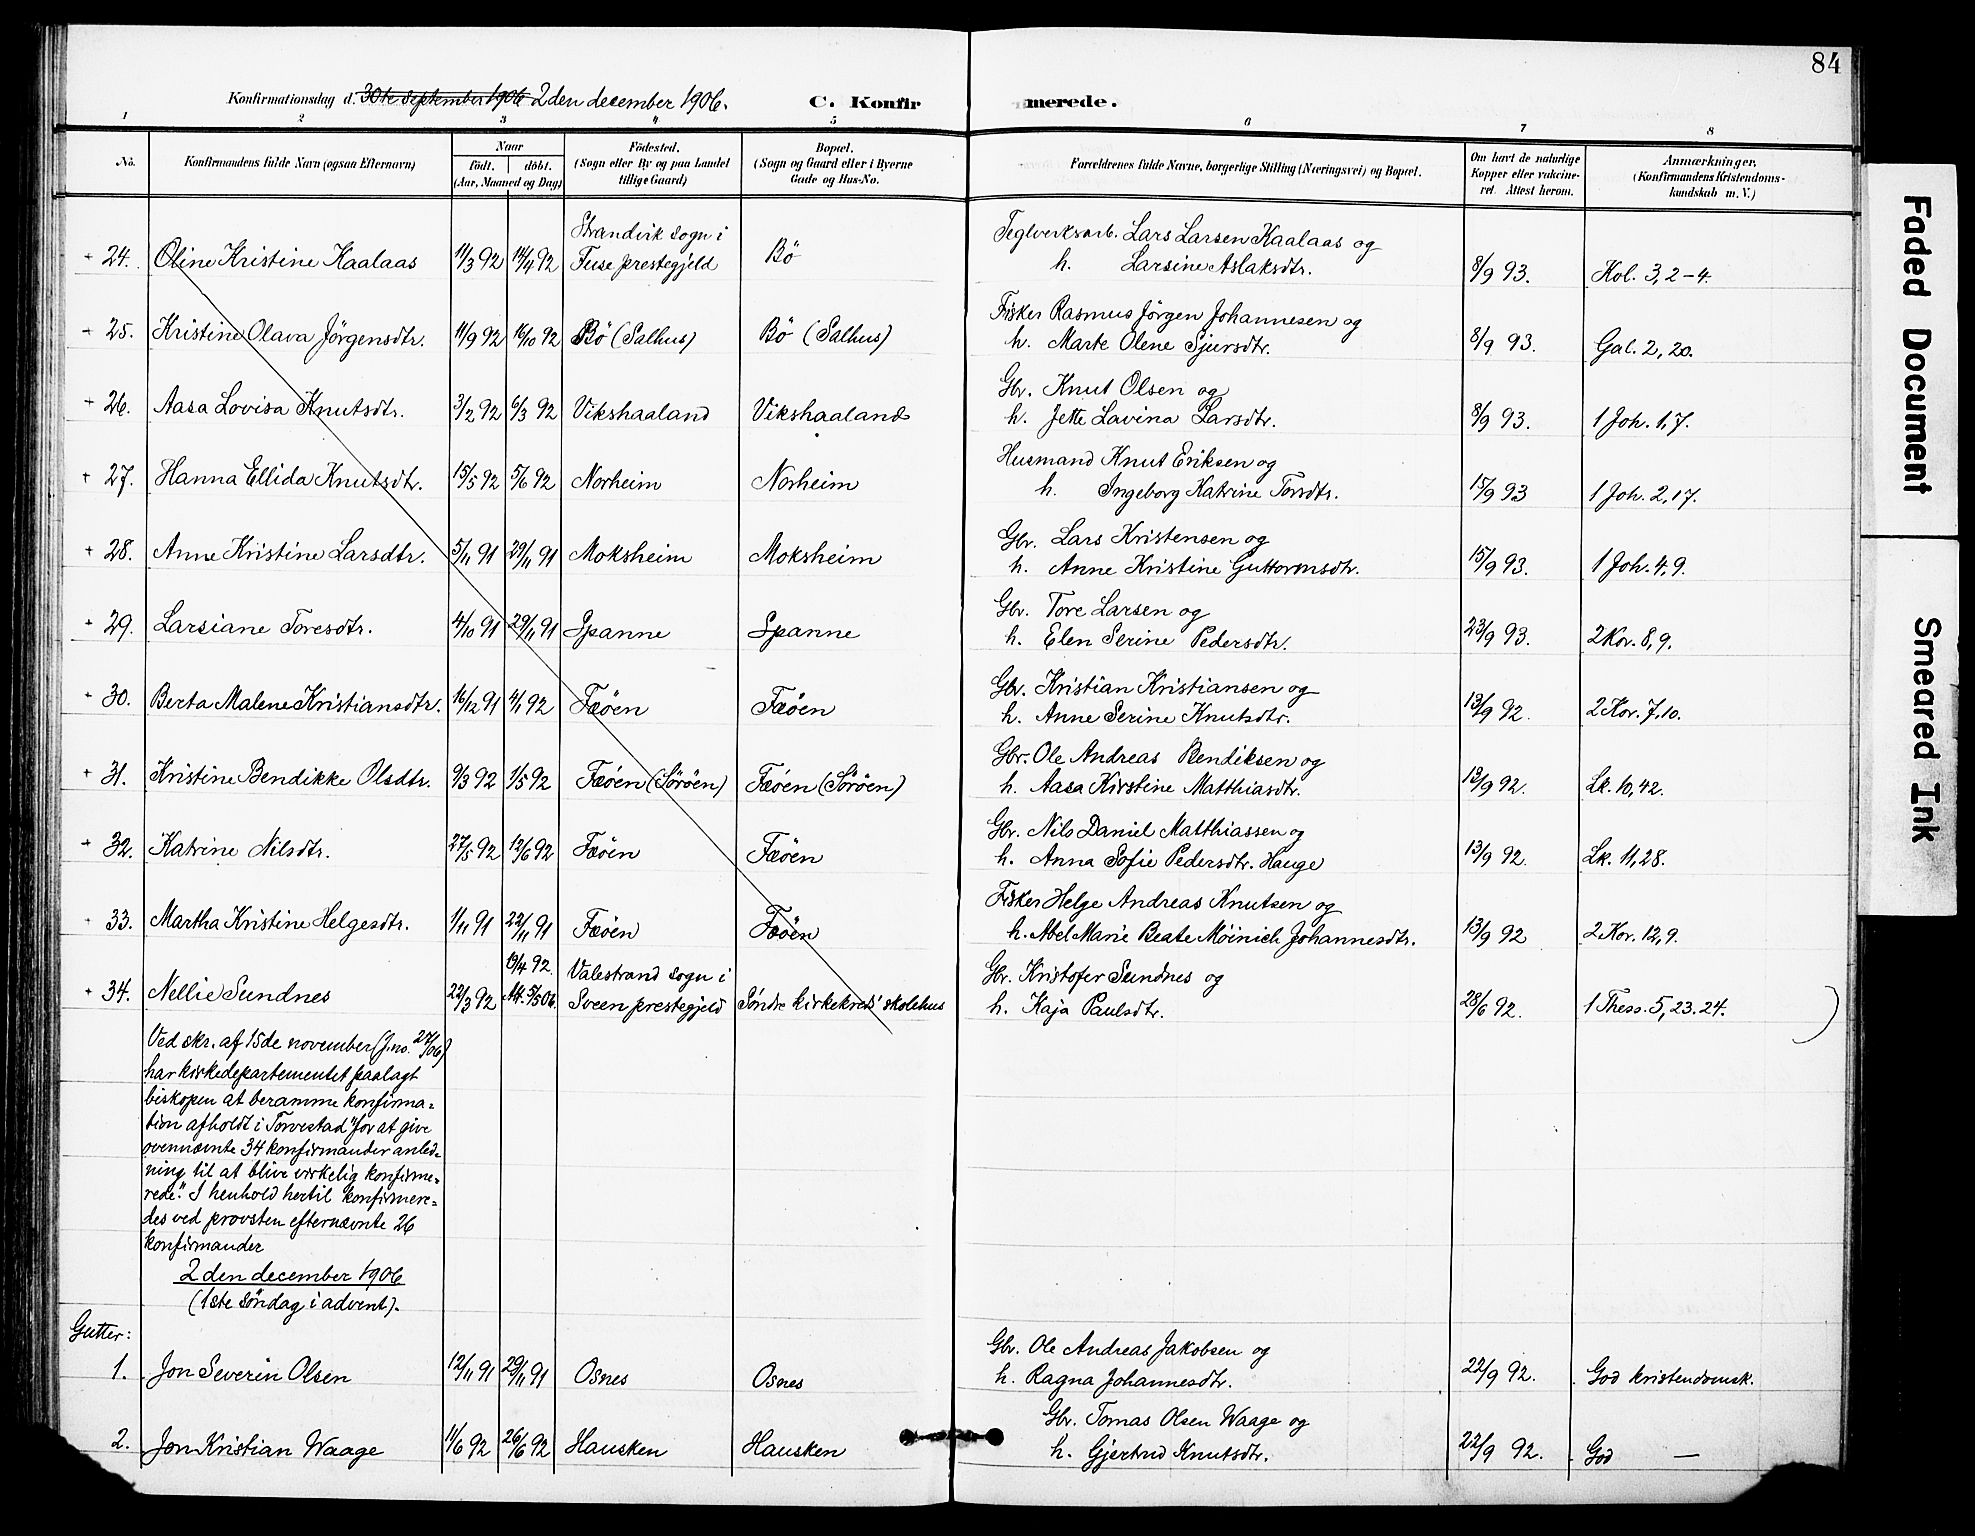 84
Konfirmationsdag d. 30te september 1906 2den december 1906. C. Konfirmerede.
1 2 3 4 5 6 7 8
No. Konfirmandens fulde Navn (ogsaa Efternavn) Naar født. døbt. (Aar, Maaned og Dag) Födested. (Sogn eller By og paa Landet tillige Gaard) Bopæl. (Sogn og Gaard eller i Byerne Gade og Hus-No. Forældrenes fulde Navne, borgerlige Stilling (Næringsvei) og Bopæl. Om havt de naturlige Kopper eller vakcineret. Attest herom. Anmærkninger, (Konfirmandens Kristendomskundskab m. V.)
+ 24. Oline Kristine Kaalaas 11/3 92 18/4 92 Strandvik sogn i Fuse prestegjeld Bö Teglverksarb. Lars Larsen Kaalaas og h. Larsine Aslaksdtr. 8/9 93. Kol. 3, 2-4.
+ 25. Kristine Olava Jörgensdtr. 11/9 92 16/10 92 Bö (Salhus) Bö (Salhus) Fisker Rasmus Jörgen Johannesen og h. Marte Olene Sjursdtr. 8/9 93. Gal. 2, 20.
+ 26. Aasa Lovisa Knutsdtr. 3/2 92 6/3 92 Vikshaaland Vikshaaland Gbr. Knut Olsen og h. Jette Lavina Larsdtr. 8/9 93. 1 Joh. 1, 7.
+ 27. Hanna Ellida Knutsdtr. 15/5 92 5/6 92 Norheim Norheim Husmand Knut Eriksen og h. Ingeborg Katrine Torsdtr. 15/9 93 1 Joh. 2, 17.
+ 28. Anne Kristine Larsdtr. 5/11 91 29/11 91 Moksheim Moksheim Gbr. Lars Kristensen og h. Anne Kristine Guttormsdtr. 15/9 93. 1 Joh. 4, 9.
+ 29. Larsiane Toresdtr. 4/10 91 29/11 91 Spanne Spanne Gbr. Tore Larsen og h. Elen Serine Pedersdtr. 23/9 93. 2 Kor. 8, 9.
+ 30. Berta Malene Kristiansdtr. 16/12 91 4/1 92 Fæöen Fæöen Gbr. Kristian Kristiansen og h. Anne Serine Knutsdtr. 13/9 92. 2 Kor. 7, 10.
+ 31. Kristine Bendikke Olsdtr. 9/3 92 1/5 92 Fæöen (Söröen) Fæöen (Söröen) Gbr. Ole Andreas Bendiksen og h. Aasa Kirstine Matthiasdtr. 13/9 92. Lk. 10, 42.
+ 32. Katrine Nilsdtr. 27/5 92 12/6 92 Fæöen Fæöen Gbr. Nils Daniel Matthiassen og h. Anna Sofie Pedersdtr. Hauge 13/9 92. Lk. 11, 28.
+ 33. Martha Kristine Helgesdtr. 1/11 91 22/11 91 Fæöen Fæöen Fisker Helge Andreas Knutsen og h. Abel Marie Beate Möinich Johannesdtr. 13/9 92 2 Kor. 12, 9.
+ 34. Nellie Sundnes 22/3 92 19/4 92. Att. 5/5 06. Valestrand sogn i Sveen prestegjeld Söndre kirkekreds' skolehus Gbr. Kristofer Sundnes og h. Kaja Paulsdtr. 28/6 92. 1 Thess. 5, 23. 24.
Ved skr. af 15de november (J.no. 27/06)
har kirkedepartementet paalagt
biskopen at beramme konfirma=
tion afholdt i Torvestad "for at give
ovennævnte 34 konfirmander anled=
ning til at blive virkelig konfirme=
rede." I henhold hertil konfirmere=
des ved provsten efternævnte 26
konfirmander
2den december 1906
(1ste söndag i advent).
Gutter:
1. Jon Severin Olsen 12/11 91 29/11 91 Osnes Osnes Gbr. Ole Andreas Jakobsen og h. Ragna Johannesdtr. 22/9 92. God kristendomsk.
2. Jon Kristian Waage 11/6 92 26/6 92 Hausken Hausken Gbr. Tomas Olsen Waage og h. Gjertrud Knutsdtr. 22/9 92. God —
Faded Document
Smeared Ink